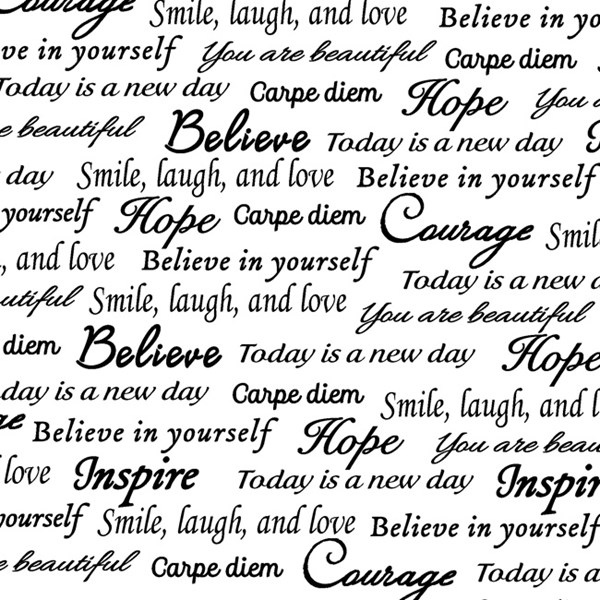 Courage Smile, laugh, and love Believe in yo
ve in yourself You are beautiful Carpe diem
Today is a new day Carpe diem Hope You a
e beautiful Believe Today is a new day
day Smile, laugh, and love Believe in yourself
yourself Hope Carpe diem Courage Smil
, and love Believe in yourself Today is a new d
utiful Smile, laugh, and love You are beautiful
diem Believe Today is a new day Hope
day is a new day Carpe diem Smile, laugh, and l
ge Believe in yourself Hope You are beau
love Inspire Today is a new day Inspir
yourself Smile, laugh, and love Believe in yourself
e beautiful Carpe diem Courage Today is a